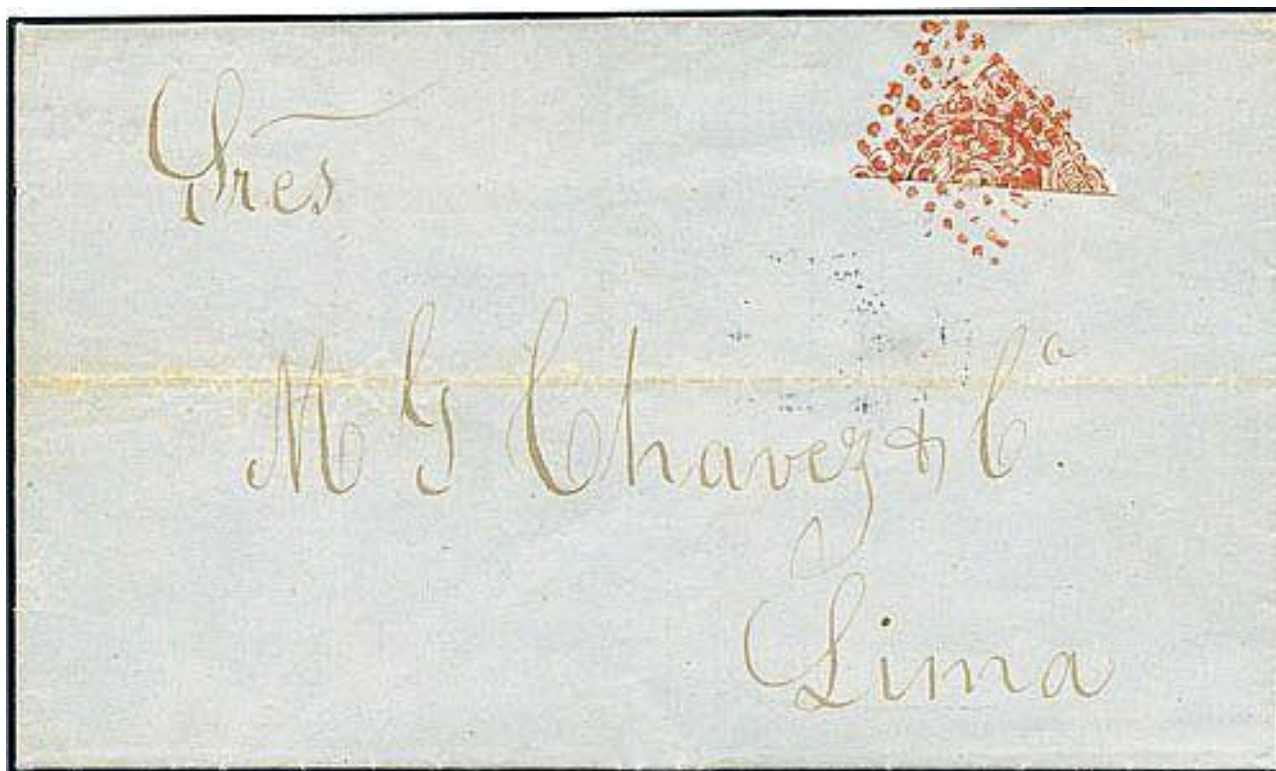 Sres
M G Chavez & Cª.
Lima